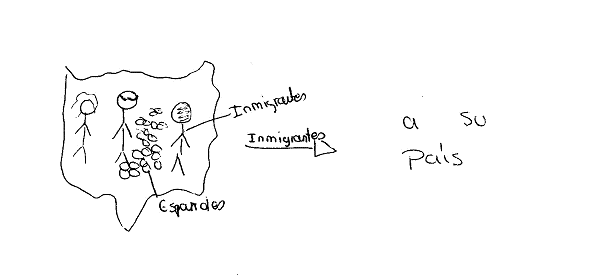 Inmigrantes
Inmigrantes
a su
país
Españoles